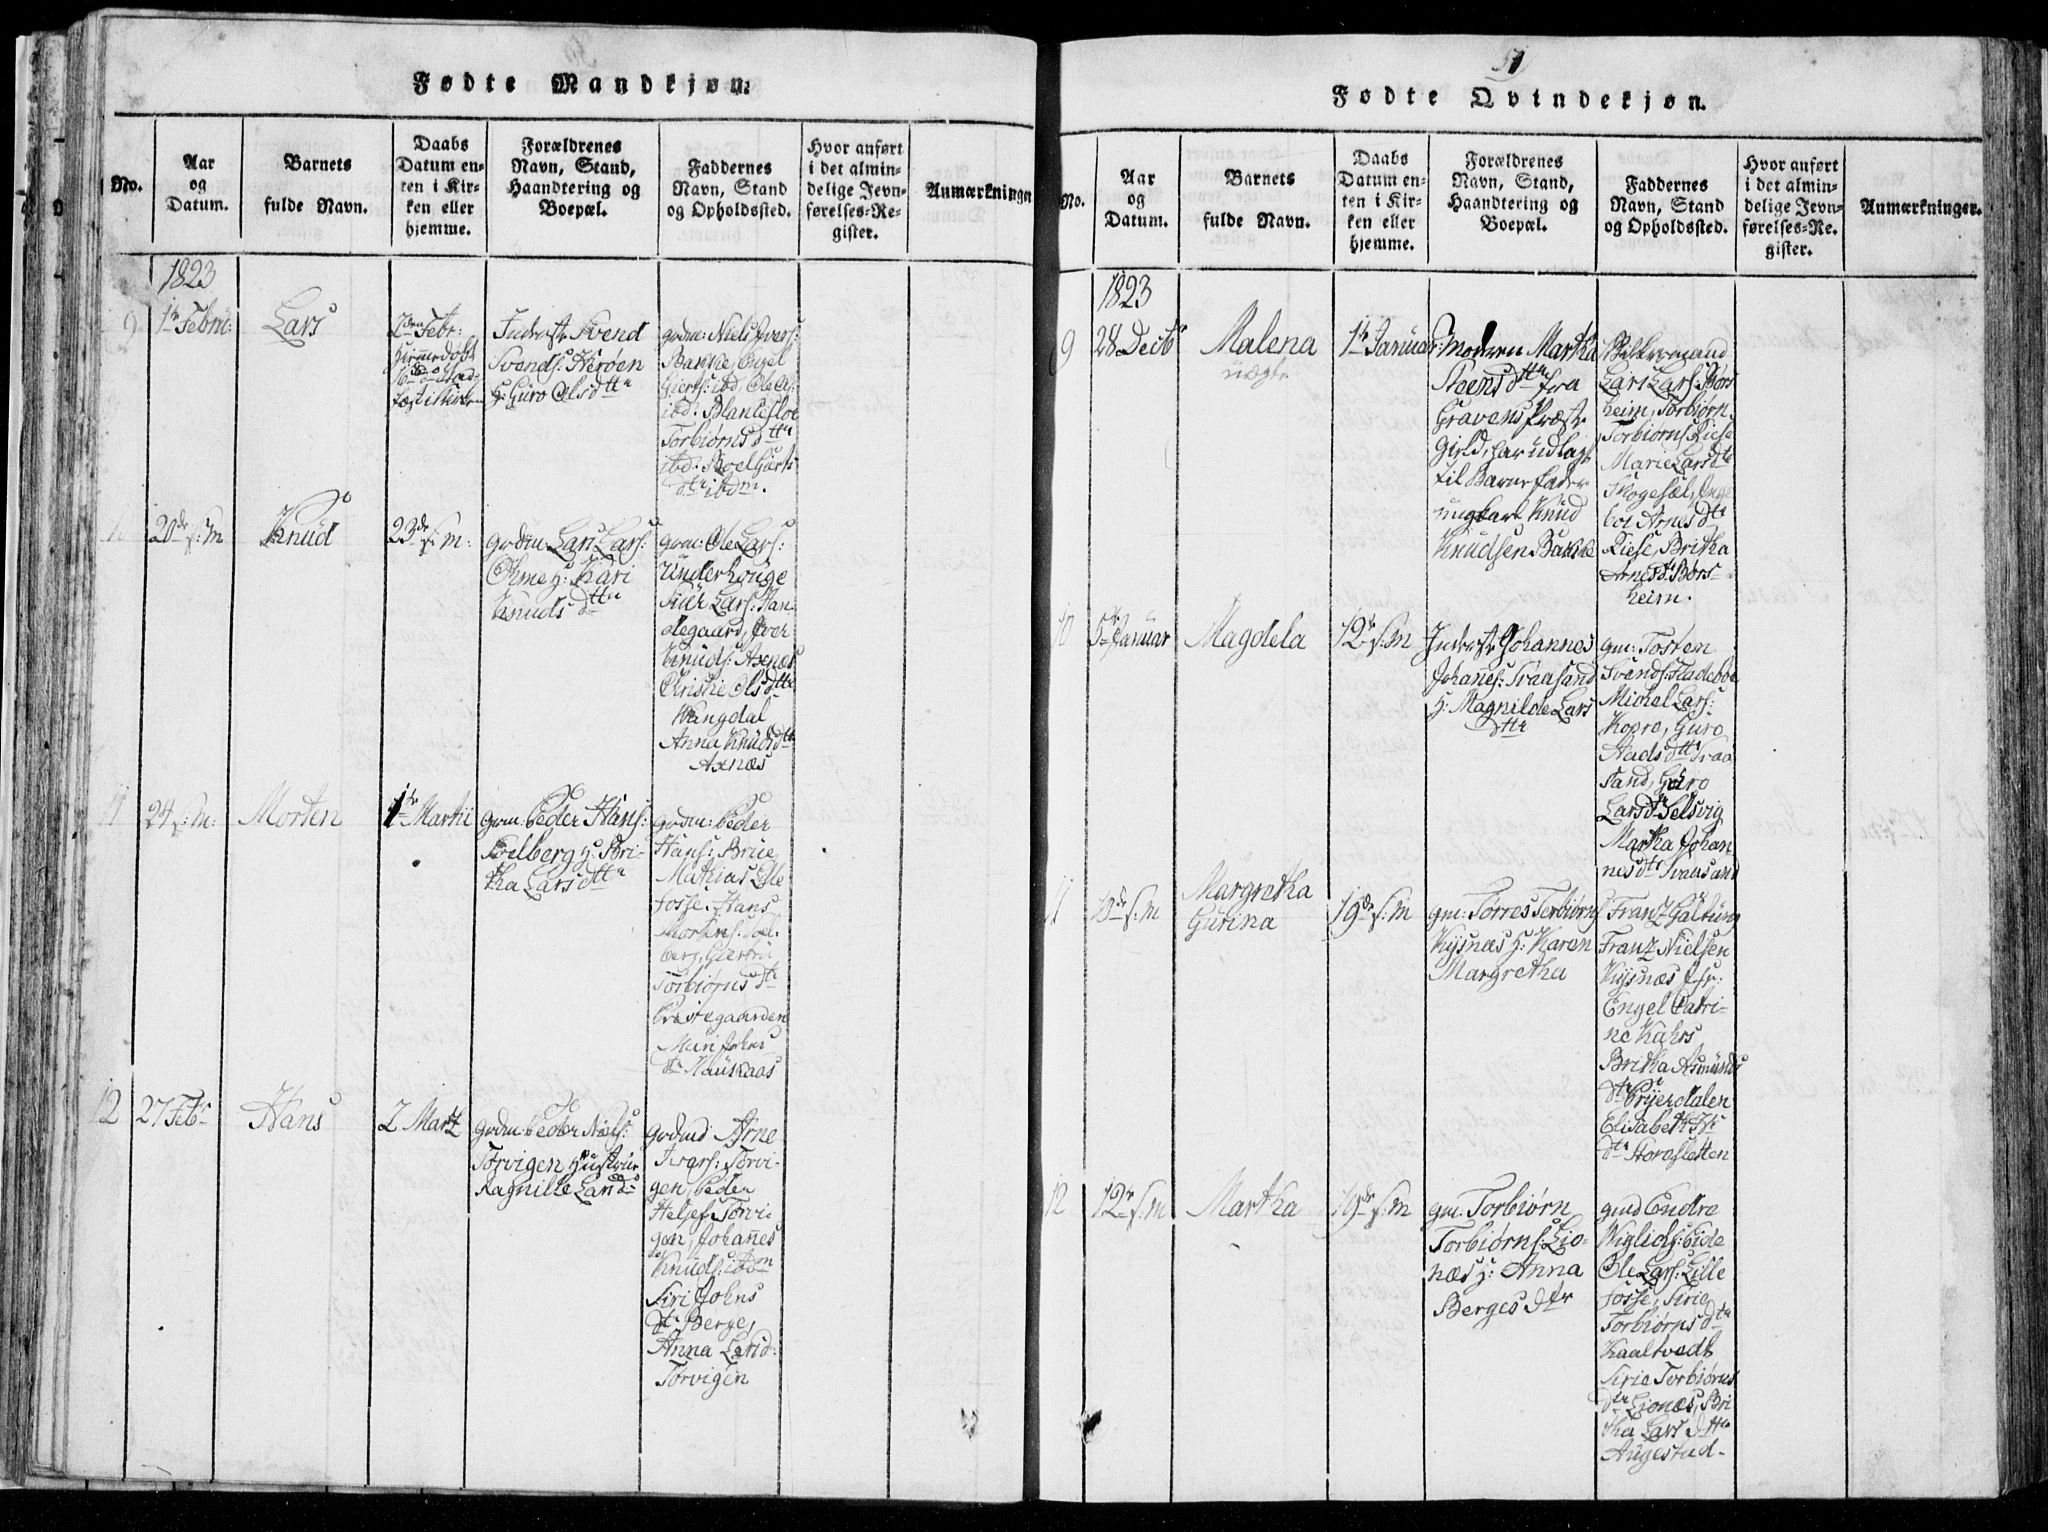 Fødte Mandkjøn.
No.
Aar
og
Datum.
Barnets
fulde Navn.
Daabs
Datum en-
ten i Kir-
ken eller
hjemme.
Forældrenes
Navn, Stand,
Haandtering og
Boepæl.
Faddernes
Navn, Stand
og Opholdssted.
Hvor anført
i det almin-
delige Jevn-
førelses-Re-
gister.
Anmærkninger
1823
9
1te Febru:
Lars
2den Febr:
Hjemmedøbt
Inderst Svend
Svends: Herøen
H: Guro Olsdttr
grdm: Niels Ivers:
Bakke, Engel
Giertsː ibd, Ole Ols:
ibd:
Torbiørns dttr
ibd:
dtr ibdm.
20de s: m
Knud
23de s: m:
grdm: Lars Lars:
H: Kari
Knuds dttr
grm: Ole Lars:
Underhouge
Siur Lars: Han-
degaard, Iver
Knuds: Axnæs
Christie Olsdttr
Wangdal
Anna Knudsdttr
Axnæs
11
24 s: m:
Morten
1te Martii
grm: Peder Hans:
Solberg H: Bri-
tha Larsdttr
grdm: Peder
Hans: Brue
Mathias Lille
Fosse, Hans
Mortens: Sol-
berg, Giertru
Torbiørns dtr
Prestegaarden
Mari Johns
dtr Haukaas
12
27 Febr
Hans
2 Martz
grdm: Peder Niels:
Torvigen Hustrue
Ragnille Larsd:
grdmd Arne
Ivars: Torvi-
gen, Peder
Heljes: Torvi
gen, Johanes
Knuds: ibdm
Siri Johns
dtr Berge,
Anna Larsd:
Torvigen
51
Fødte Qvindekjøn.
No.
Aar
og
Datum.
Barnets
fulde Navn.
Daabs
Datum en-
ten i Kir-
ken eller
hjemme.
Forældrenes
Navn, Stand,
Haandtering og
Boepæl.
Faddernes
Navn, Stand
og Opholdssted.
Hvor anført
i det almin-
delige Jevn-
førelses-Re-
gister.
Anmærkninger.
1823
9
28 Decbr
Malena
uægte
1te Januar
Moderen Martha
Steensdttr fra
Gravens Præste
Gield, har udlagt
til Barnefader
ungkarl Knud
Knudsen Bakke
Lars Lars: Børs
heim, Torbiørn
Torbiørns: Liese
Marie Larsdtr
Skogesæl, Inge
bor Arnes dtr
Liese, Britha
Arnesd: Børs-
heim.
10
5te Januar
Magdela
12te s: m
Inderst Johannes
Johanes: Svaasand
H: Magnilde Lars
dttr
gm: Tosten
Svends: Fladebbe
Michel Lars:
Kopre, Guro
Aads dttr Svaa
sand, Guro
Larsdtr Selsvig
Martha Johan
nesdtr Svaasand
11
s: m
Margretha
Gurina
19de s: m
gm: Torres Torbiørns
Kysnæs H: Karen
Margretha
Franz Galtung
Franz Nielsen
Kysnæs Jfr:
Engel Catri-
ne Kahrs
Britha Asmunds
dtr Dryerdalen
Elisabeth
dtr Storæsletten
12
12te s: m
Martha
19de s: m
gm: Torbiørn
Torbiørns: Lio-
næs H: Anna
Berges dtr
gmd Endre
Wiglichs: Eide
Ole Lars: Lille
Fosse, Sirie
Torbiørns dtr
Kaaltvedt
Sirie Torbiørns
dtr Lionæs, Bri
tha Lars dttr
Augestad-